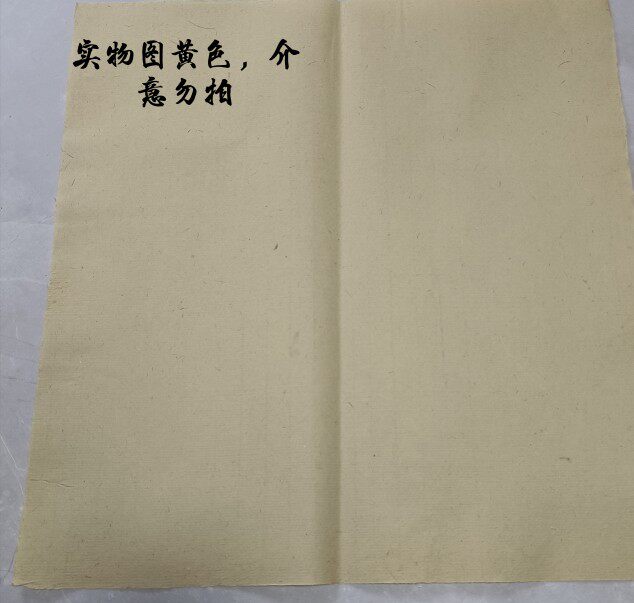 实物图黄色，介
意勿拍